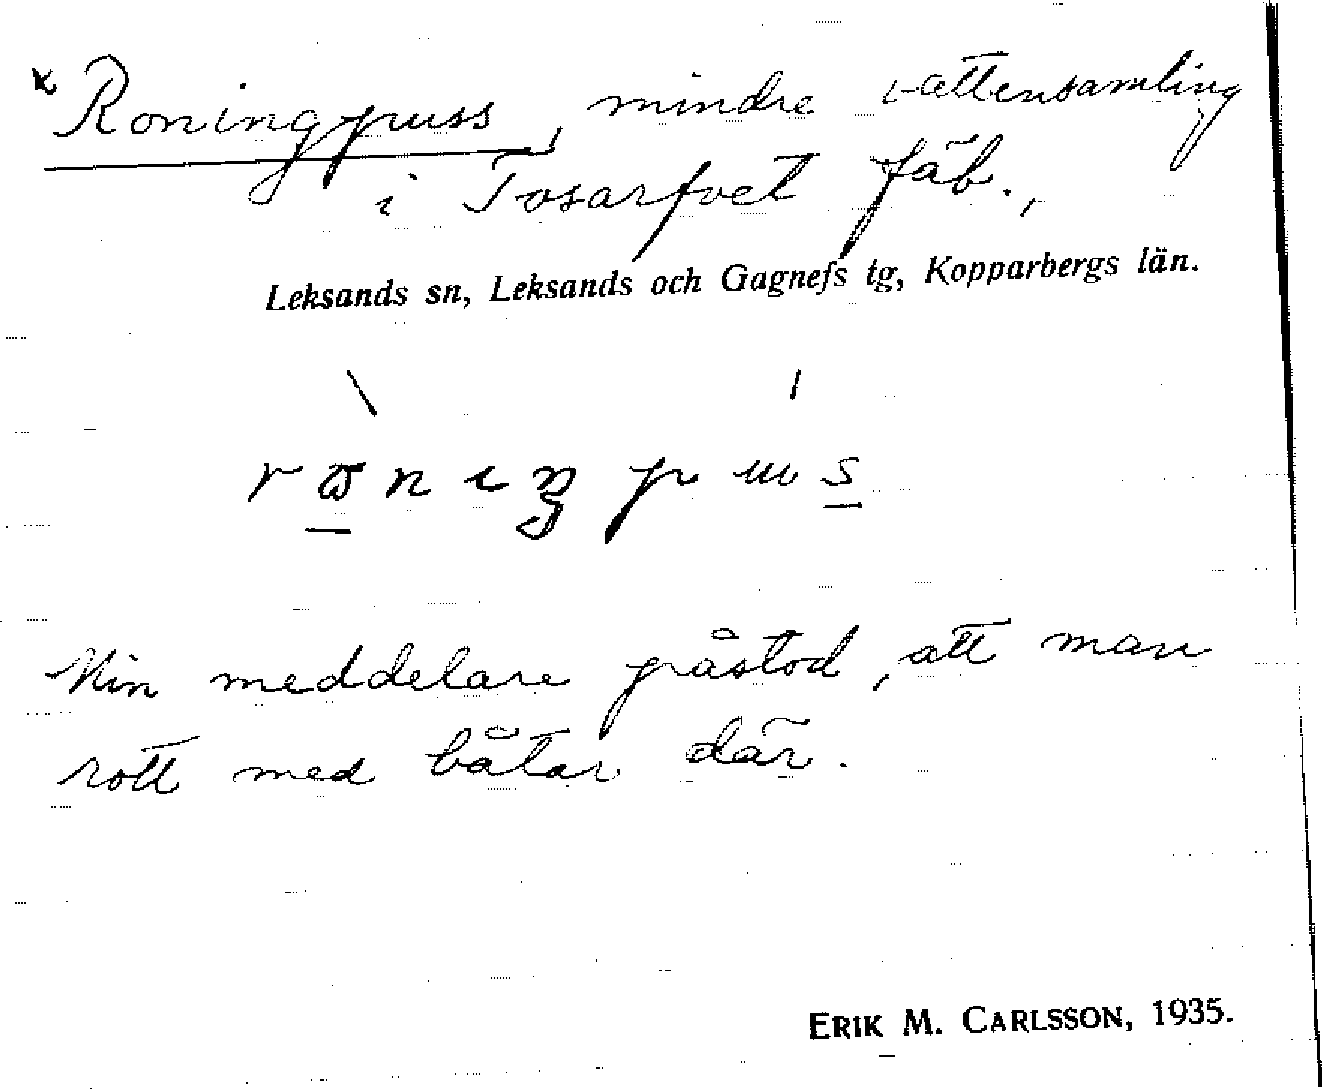 * Roningpuss, mindre vattensamling
i Tosarfvet fäb.,
Leksands sn, Leksands och Gagnefs tg, Kopparbergs län.
Min meddelare påstod, att man
rott med båtar där.
ERIK M. CARLSSON, 1935.